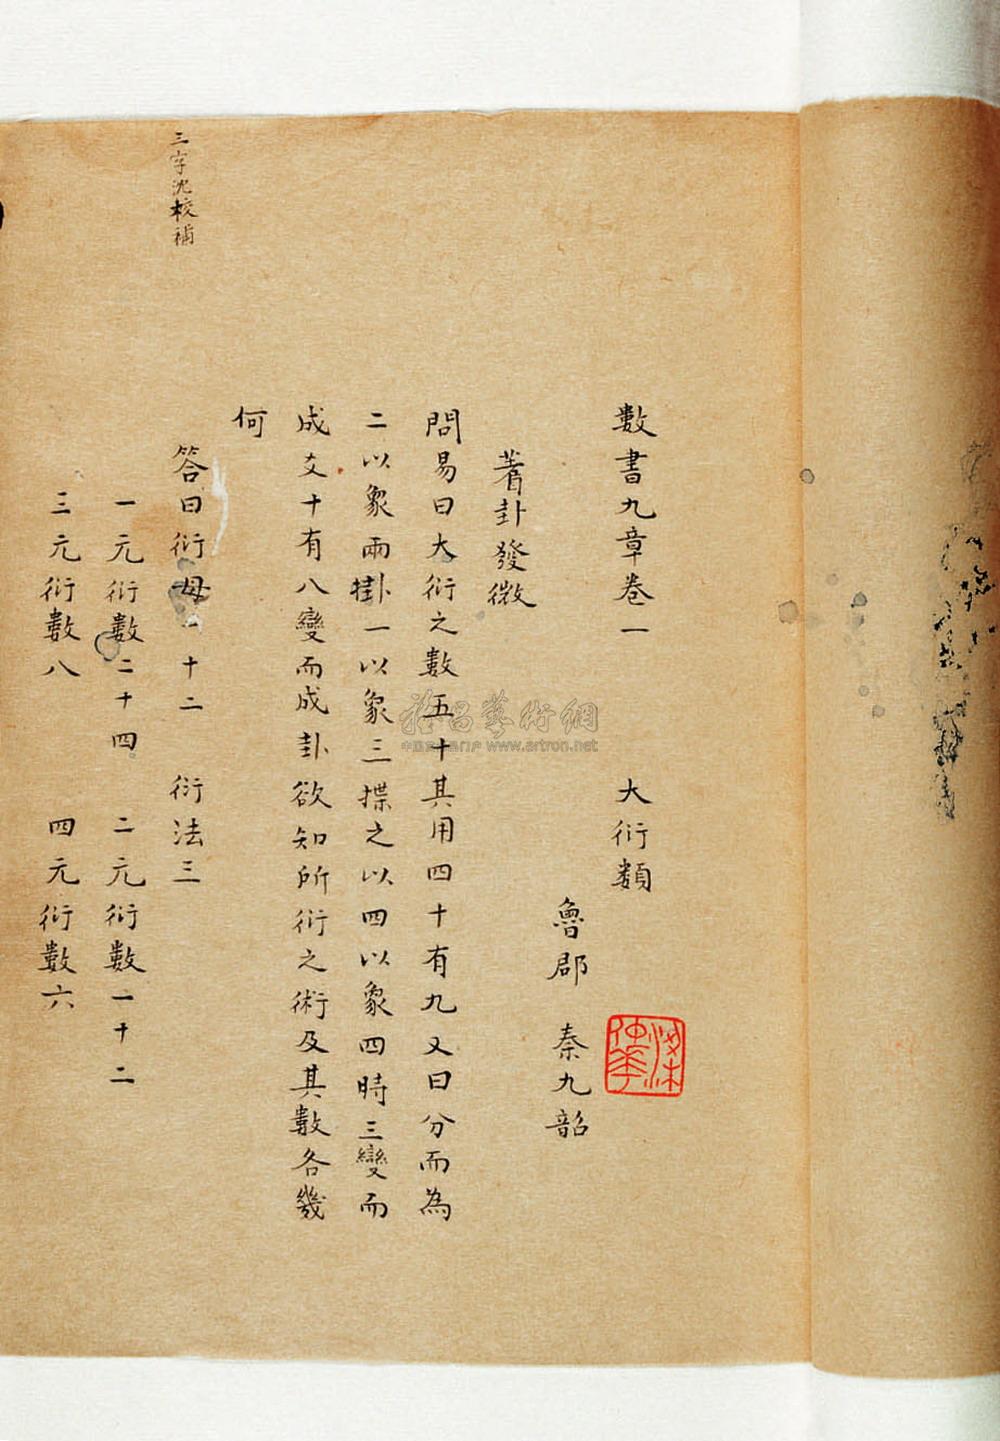 數書九章卷一 大衍類
魯郡 秦九韶
蓍卦發微
問易曰大衍之數五十其用四十有九又曰分而為
二以象兩掛一以象三揲之以四以象四時三變而
成爻十有八變而成卦欲知所衍之術及其數各幾
何
三字沈校補
答曰衍母一十二 衍法三
一元衍數二十四 二元衍數一十二
三元衍數八 四元衍數六
www.artron.net